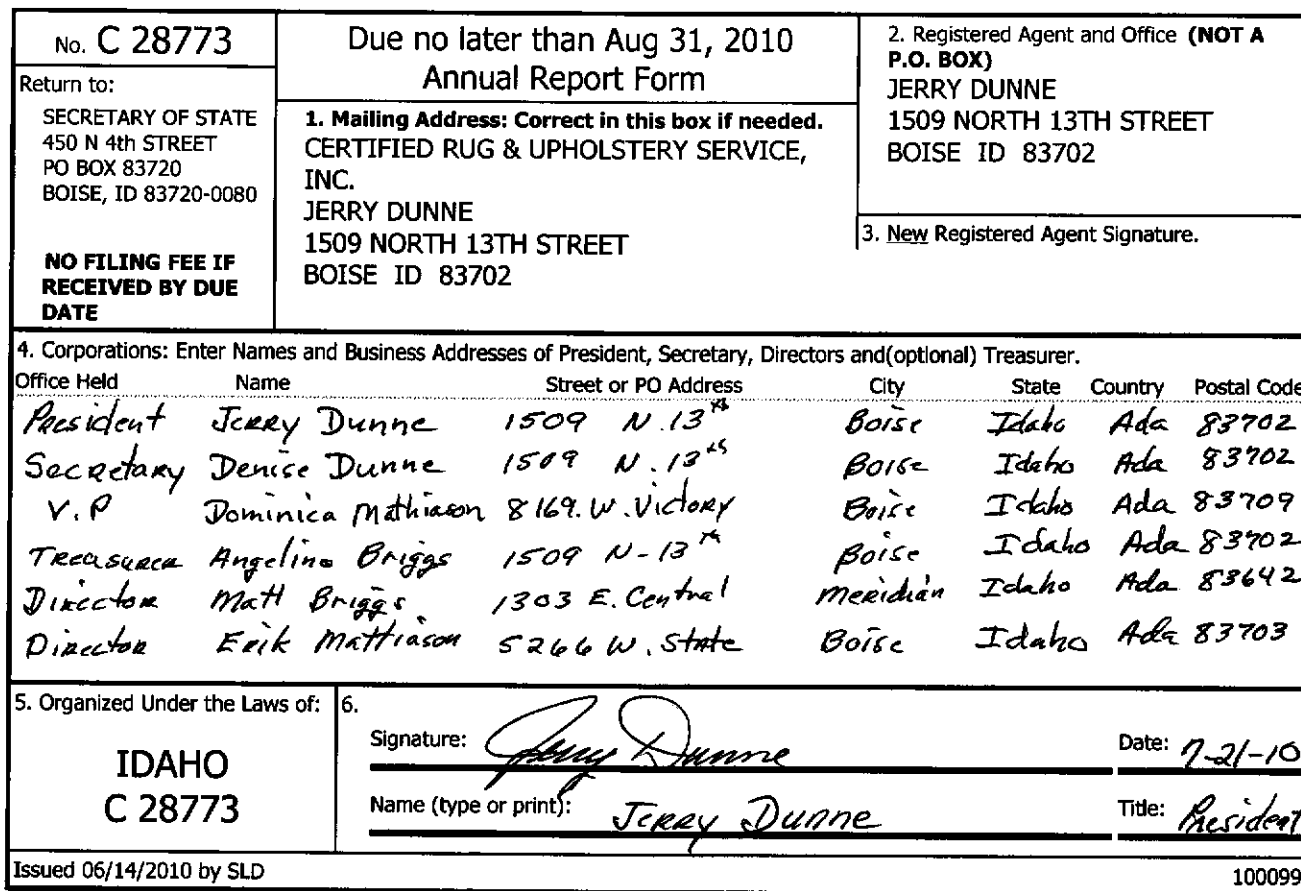 No. C 28773
Return to:
SECRETARY OF STATE
450 N 4th STREET
PO BOX 83720
BOISE, ID 83720-0080
NO FILING FEE IF
RECEIVED BY DUE
DATE
Due no later than Aug 31, 2010
Annual Report Form
1. Mailing Address: Correct in this box if needed.
CERTIFIED RUG & UPHOLSTERY SERVICE,
INC.
JERRY DUNNE
1509 NORTH 13TH STREET
BOISE ID 83702
2. Registered Agent and Office (NOT A
P.O. BOX)
JERRY DUNNE
1509 NORTH 13TH STREET
BOISE ID 83702
3. New Registered Agent Signature.
4. Corporations: Enter Names and Business Addresses of President, Secretary, Directors and(optional) Treasurer.
Office Held Name Street or PO Address City State Country Postal Code
President Jerry Dunne 1509 N. 13th Boise Idaho Ada 83702
Secretary Denise Dunne 1509 N. 13th Boise Idaho Ada 83702
V.P Dominica Mathiason 8169. W. Victory Boise Idaho Ada 83709
Treasurer Angelina Briggs 1509 N-13th Boise Idaho Ada 83702
Director Matt Briggs 1303 E. Central Meridian Idaho Ada 83642
Director Erik Mattiason 5266 W. State Boise Idaho Ada 83703
5. Organized Under the Laws of:
IDAHO
C 28773
6.
Signature: Jerry Dunne Date: 7-21-10
Name (type or print): Jerry Dunne Title: President
Issued 06/14/2010 by SLD 100099